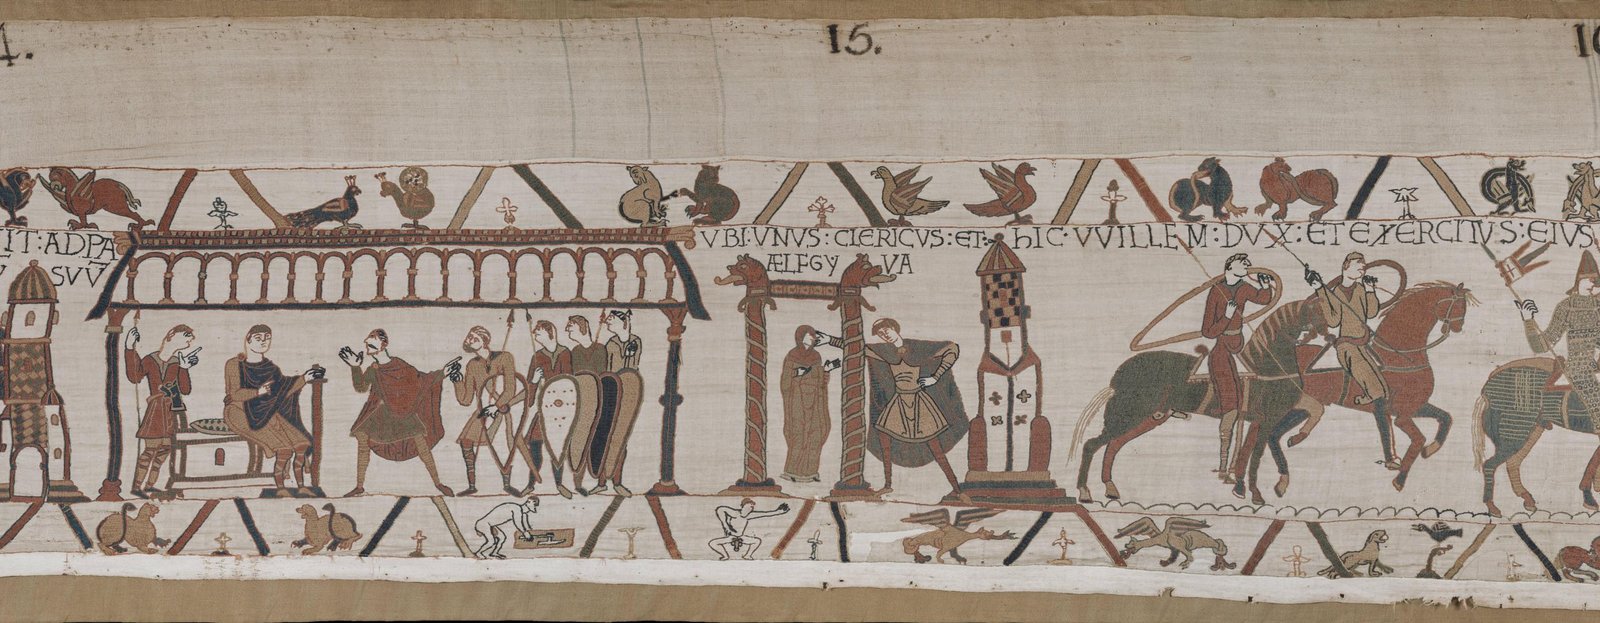 4. 15. 16
IT : ADPA
SVVM
VBI : VNVS : CLERICVS : ET :
ÆLFGYVA
hIC · VVILLEM : DVX : ET EXERCITVS : EIVS